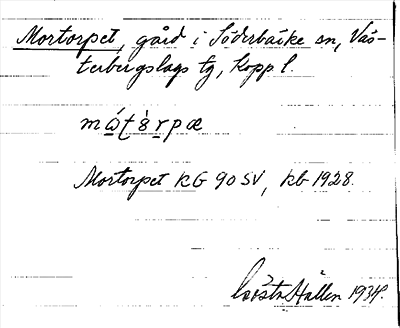 Mortorpet, gård i Söderbärke sn, Väs-
terbergslags tg, Kopp l.
Mortorpet KG 90 SV, kb 1928.
Hallén 1934.